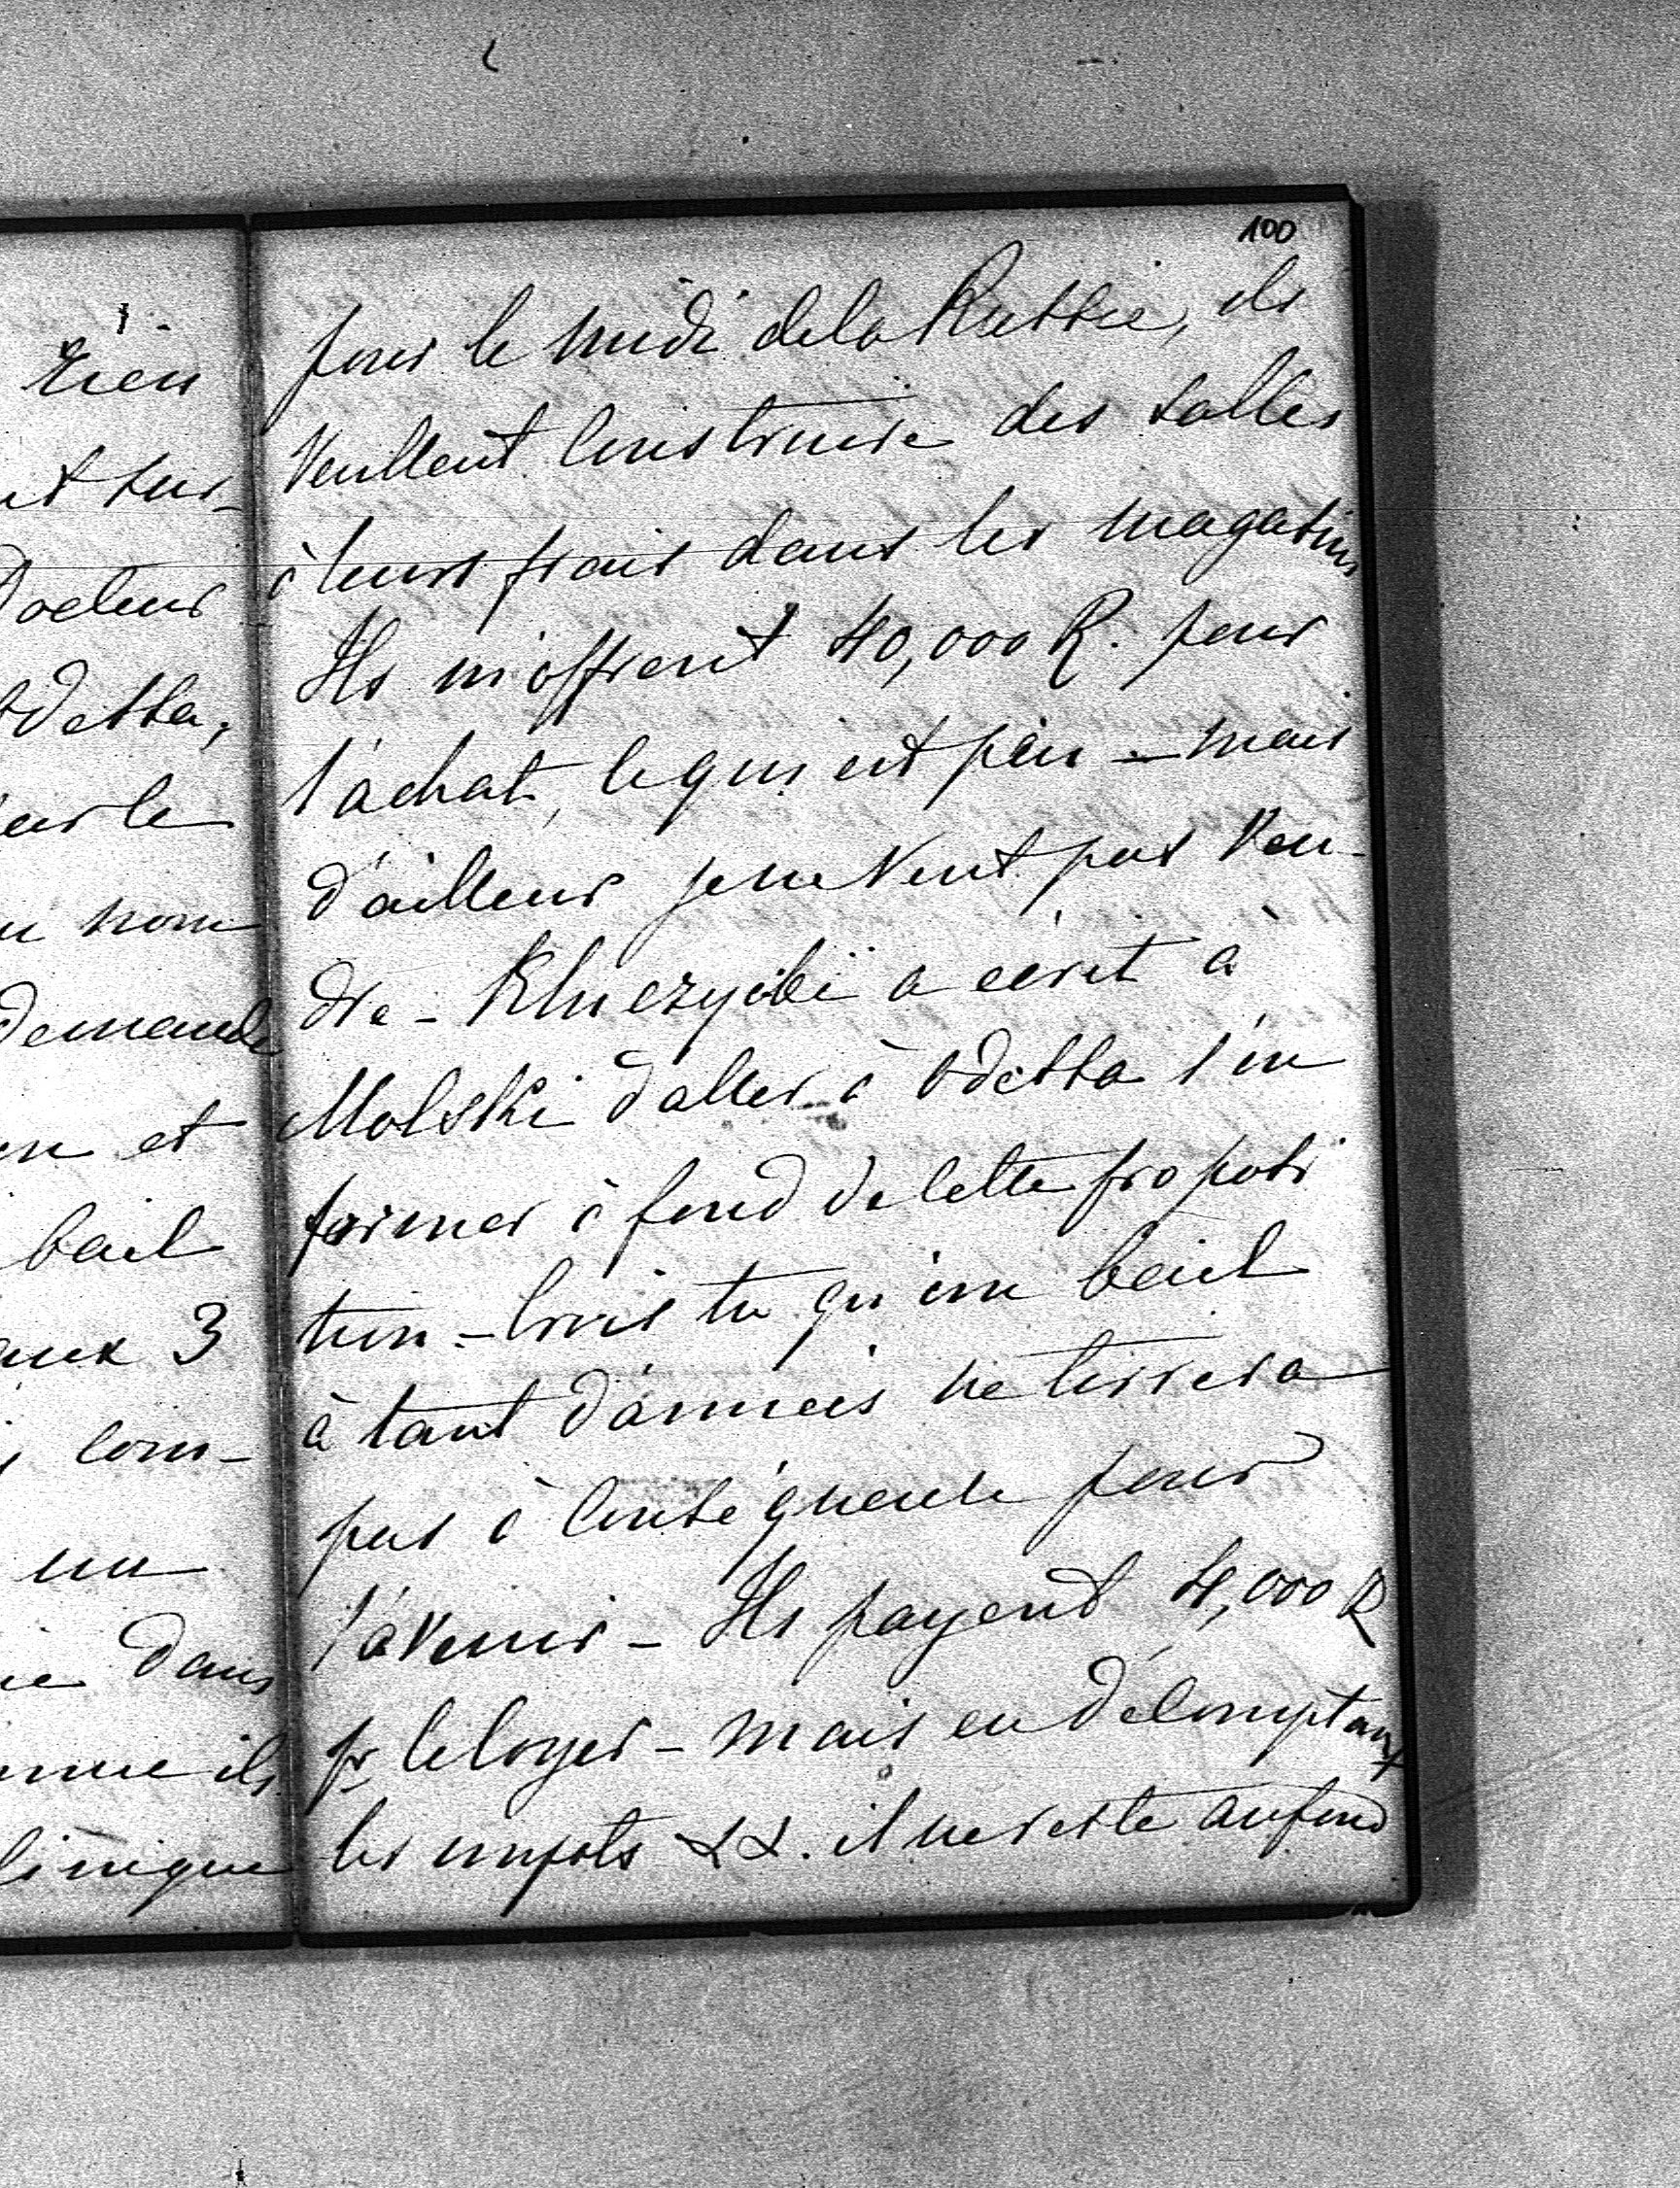 100
pour le midi de la Russie, ils
veullent construire des salles
à leurs frais dans les magasins
Ils m'offrent 40,000 R. pour
l'achat, ce qui est peu – mais
d'ailleurs je ne veut pas ven-
dre – Kluczycki a écrit à
Molski d'aller à Odessa s'in
former à fond de cette proposi
tion – Crois tu qu'un bail
à tant d'années ne tirrera
pas à conséquence pour
l'avenir – Ils payent 4,000 R
pr le loyer – mais en décomptant
les impots & &. il ne reste au fond
rien
Docteur
Odessa,
sur le
nom
demande
et
bail
aux 3
com-
un
dans
ils